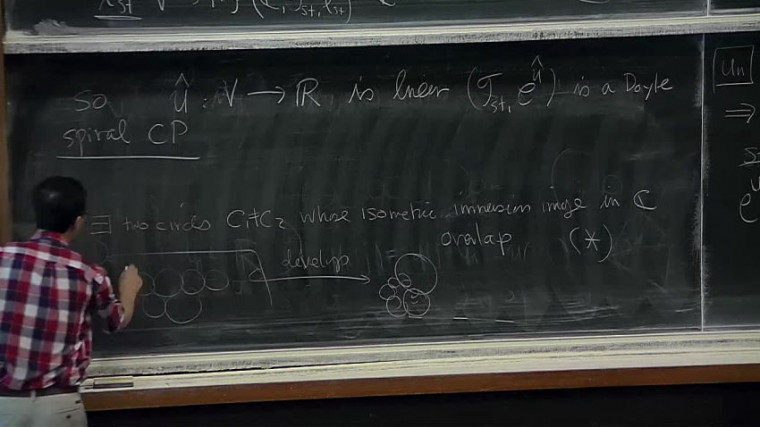 so û : V → ℝ is linear (T_st, e^û) is a Doyle
spiral CP
∃ two circles C₁≠C₂ whose isometric immersion image in ℂ
overlap (*)
develop
Un
⇒